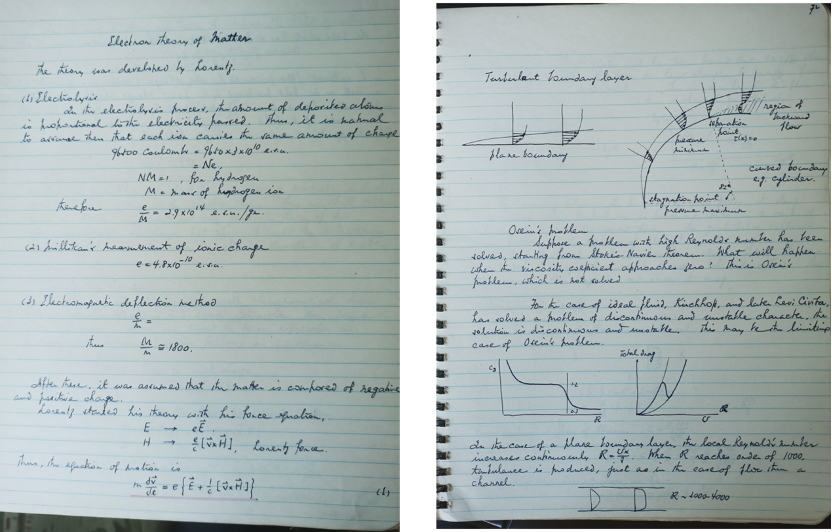 Electron theory of Matter
The theory was developed by Lorentz.
(1) Electrolysis
In the electrolysis process, the amount of deposited atoms
is proportional to the electricity passed. Thus, it is natural
to assume then that each ion carries the same amount of charge
96500 Coulombs = 9650 × 3 × 10^10 e.s.u.
= Ne,
NM = 1, for hydrogen
M = mass of hydrogen ion
therefore e/M = 2.9 × 10^14 e.s.u./gm.
(2) Millikan's measurement of ionic charge
e = 4.8 × 10^-10 e.s.u.
(3) Electromagnetic deflection method
e/m =
thus M/m ≅ 1800.
After these, it was assumed that the matter is composed of negative
and positive charge.
Lorentz started his theory with his force equation,
E → eE⃗.
H → e/c [v⃗ × H⃗], Lorentz force.
Thus, the equation of motion is
m dv⃗/dt = e{E⃗ + 1/c [v⃗ × H⃗]}
(1)
72
Turbulent boundary layer
plane boundary
separation
point
pressure
minimum
region of
backward
flow
curved boundary
e.g. cylinder.
stagnation point
pressure maximum
Oseen's problem
Suppose a problem with high Reynold's number has been
solved, starting from Stokes Navier theorem. What will happen
when the viscosity coefficient approaches zero? This is Oseen's
problem, which is not solved
For the case of ideal fluid, Kirchhoff, and late Levi Civita,
has solved a problem of discontinuous and unstable character, the
solution is discontinuous and unstable. This may be the limiting
case of Oseen's problem.
Total drag
R
U
In the case of a plane boundary layer, the local Reynold's number
increases continuously R = Ux/ν. When R reaches order of 1000,
turbulence is produced, just as in the case of flow thru a
channel.
R ~ 1000-4000